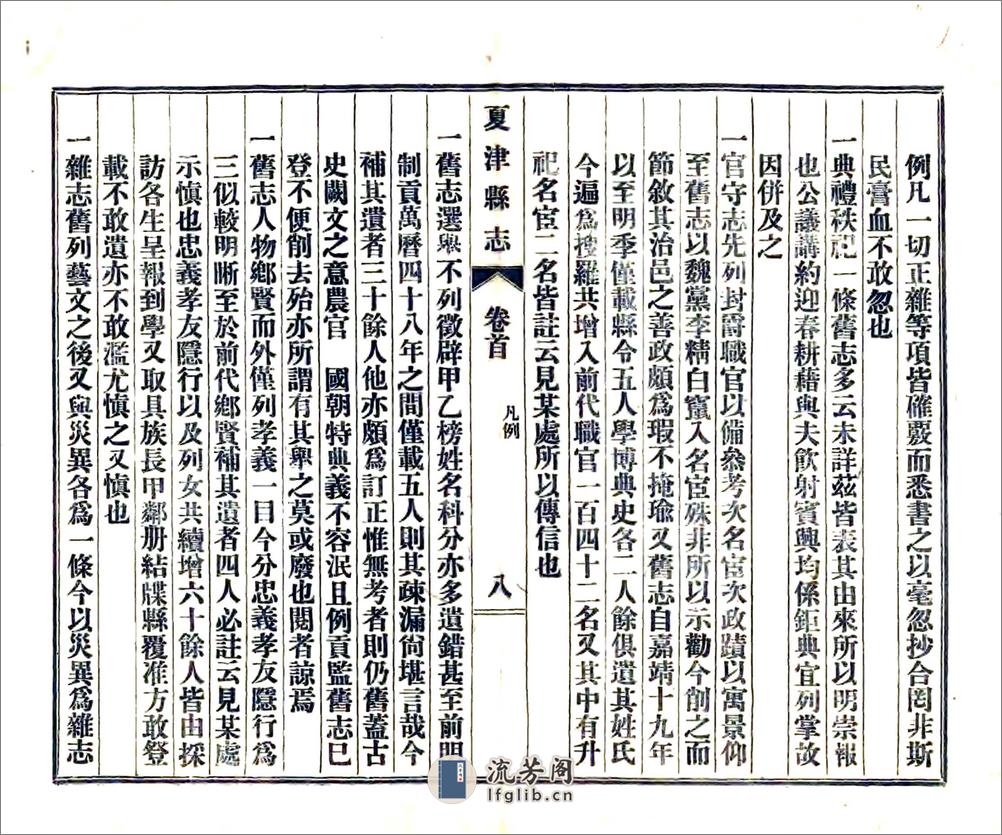 例凡一切正雜等項皆確覈而悉書之以毫忽抄合罔非斯
民膏血不敢忽也
一典禮秩祀一條舊志多云未詳茲皆表其由來所以明崇報
也公議講約迎春耕藉與夫飮射賓興均係鉅典宜列掌故
因併及之
一官守志先列封爵職官以備參考次名宦次政蹟以寓景仰
至舊志以魏黨李精白竄入名宦殊非所以示勸今削之而
節敘其治邑之善政頗爲瑕不掩瑜又舊志自嘉靖十九年
以至明季僅載縣令五人學博典史各二人餘俱遺其姓氏
今遍爲搜羅共增入前代職官一百四十二名又其中有升
祀名宦二名皆註云見某處所以傳信也
夏津縣志
卷首
凡例
八
一舊志選舉不列徵辟甲乙榜姓名科分亦多遺錯甚至前明
制貢萬曆四十八年之間僅載五人則其疎漏尙堪言哉今
補其遺者三十餘人他亦頗爲訂正惟無考者則仍舊蓋古
史闕文之意農官 國朝特典義不容泯且例貢監舊志已
登不便削去殆亦所謂有其舉之莫或廢也閱者諒焉
一舊志人物鄕賢而外僅列孝義一目今分忠義孝友隱行爲
三似較明晰至於前代鄕賢補其遺者四人必註云見某處
示愼也忠義孝友隱行以及列女共續增六十餘人皆由採
訪各生呈報到學又取具族長甲鄰册結牒縣覆准方敢登
載不敢遺亦不敢濫尤愼之又愼也
一雜志舊列藝文之後又與災異各爲一條今以災異爲雜志
流芳阁
lfglib.cn